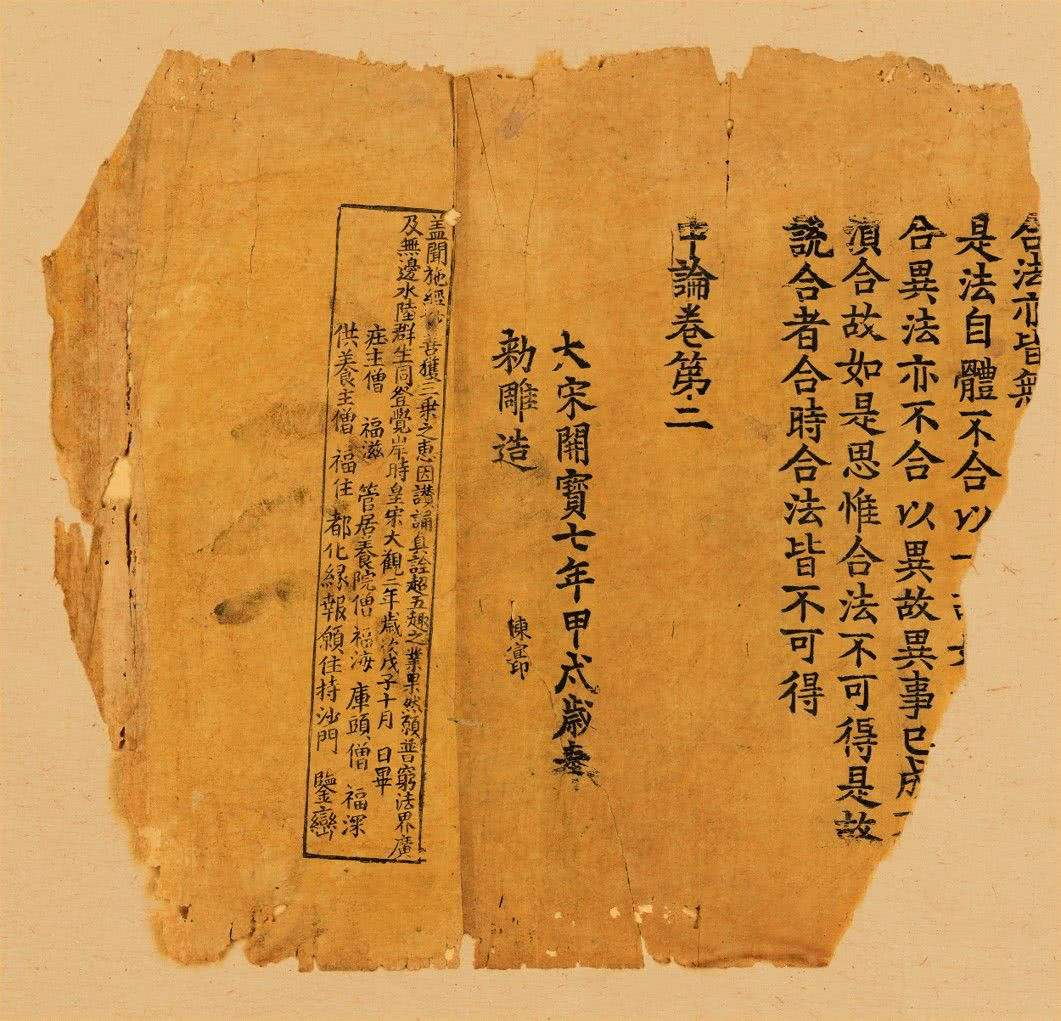 合法亦皆無
是法自體不合以一
合異法亦不合以異故異事已成
須合故如是思惟合法不可得是故
說合者合時合法皆不可得
中論卷第二
大宋開寶七年甲戌歲奉
勑雕造
陳宻印
盖聞施經妙善獲三乗之惠因讃誦真詮超五趣之業果然願普窮法界廣
及無邊水陸群生同登覺岸時皇宋大觀二年歲次戊子十月 日畢
庄主僧 福滋 管居養院僧 福海 庫頭僧 福深
供養主僧 福住 都化緣報願住持沙門 鑒巒